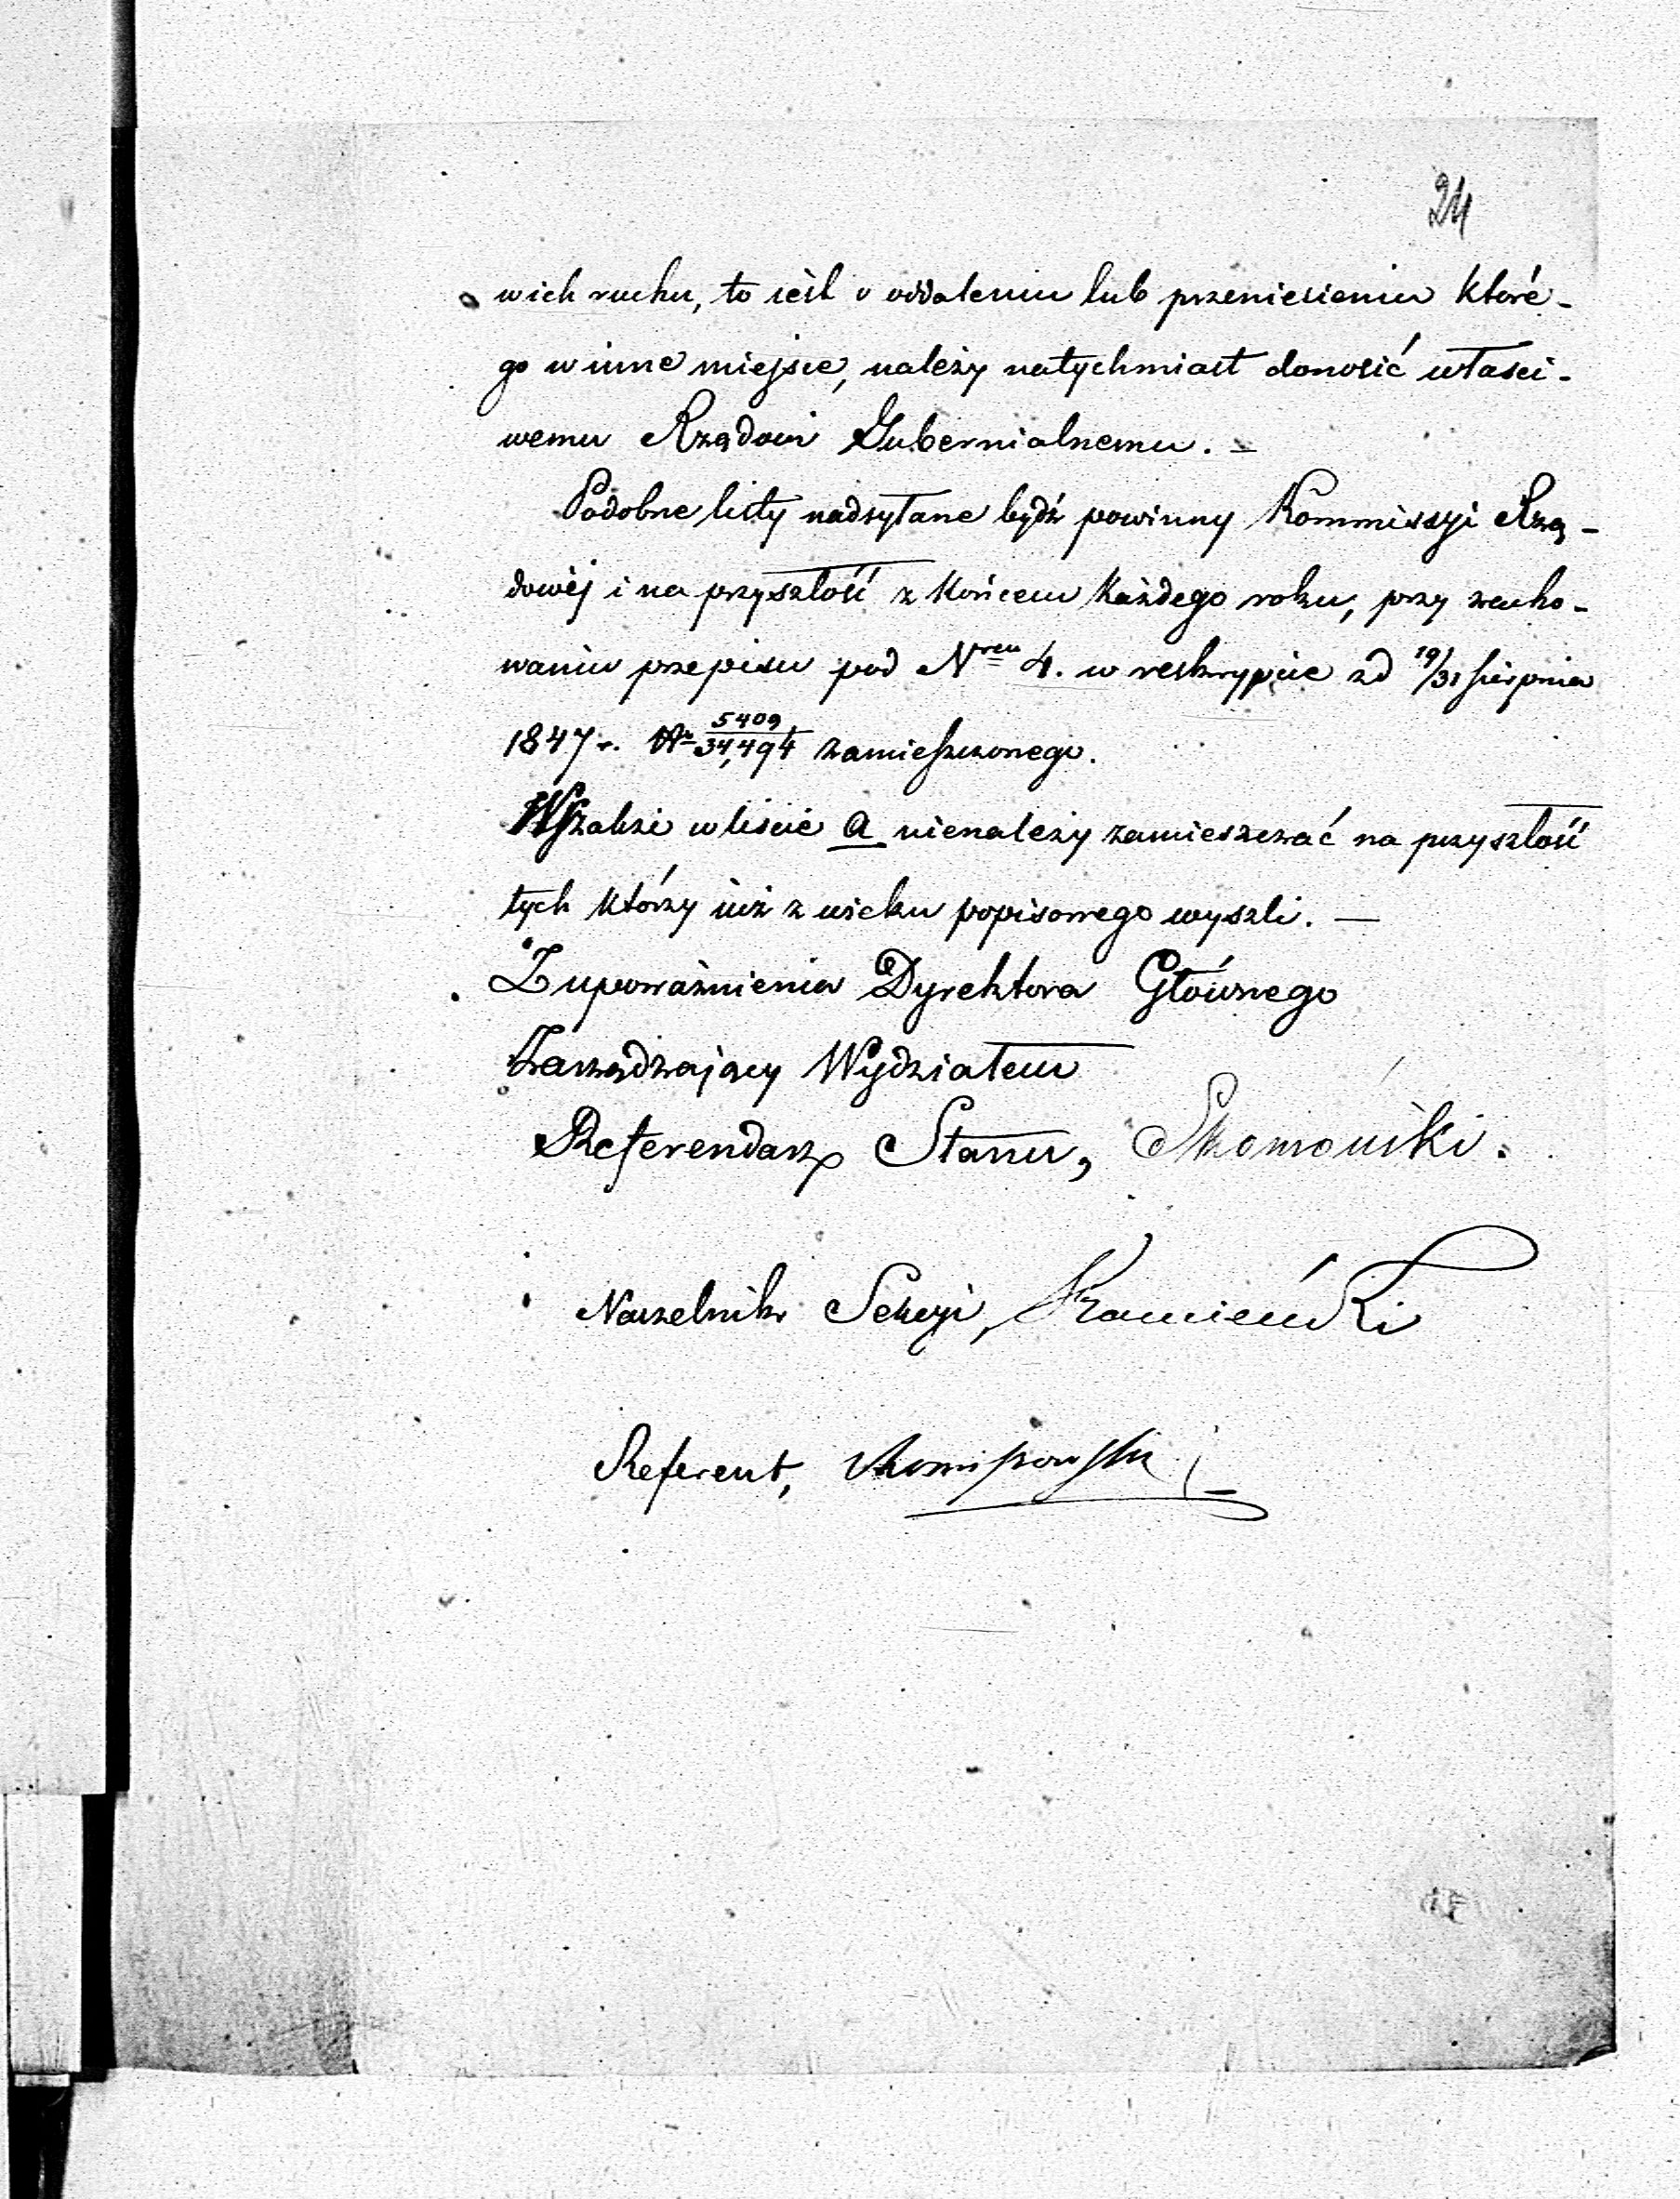 24
w ich ruchu, to iest o oddaleniu lub przeniesieniu które-
go w inne miejsce, należy natychmiast donosić właści-
wemu Rządowi Gubernialnemu. –
Podobne listy nadsyłane bydź powinny Kommissyi Rzą-
dowéj i na przyszłość z końcem każdego roku, przy zacho-
waniu przepisu pod Nrem 4. w reskrypcie z d 19/31 Sierpnia
1847 r. No 5409/34,494 zamieszczonego.
Wszakże w liście a nienależy zamieszczać na przyszłość
tych którzy iuż z wieku popisowego wyszli. —
Z upoważnienia Dyrektora Głównego
Zarządzający Wydziałem
Referendarz Stanu,
Naczelnik Sekcyi, Kamieński
Referent,